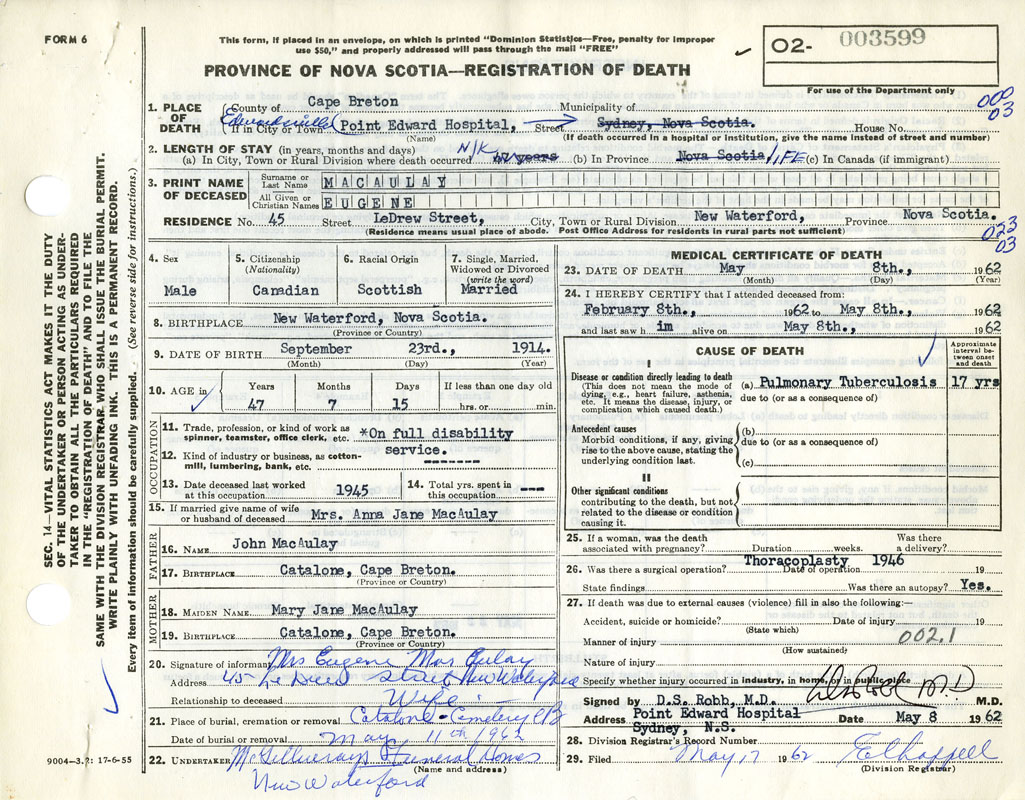 FORM 6
This form, if placed in an envelope, on which is printed "Dominion Statistics—Free, penalty for improper
use $50," and properly addressed will pass through the mail "FREE"
O2- 003599
PROVINCE OF NOVA SCOTIA—REGISTRATION OF DEATH
For use of the Department only
000
03
1. PLACE OF DEATH
County of Cape Breton Municipality of
Edwardsville
If in City or Town Point Edward Hospital, Street Sydney, Nova Scotia. House No.
(Name) (If death occurred in a hospital or institution, give the name instead of street and number)
2. LENGTH OF STAY (in years, months and days) N/K
(a) In City, Town or Rural Division where death occurred 47 years (b) In Province Nova Scotia LIFE (c) In Canada (if immigrant)
3. PRINT NAME OF DECEASED
Surname or Last Name MACAULAY
All Given or Christian Names EUGENE
RESIDENCE No. 45 Street LeDrew Street, City, Town or Rural Division New Waterford, Province Nova Scotia.
(Residence means usual place of abode. Post Office Address for residents in rural parts not sufficient)
023
03
4. Sex
Male
5. Citizenship
(Nationality)
Canadian
6. Racial Origin
Scottish
7. Single, Married,
Widowed or Divorced
(write the word)
Married
8. BIRTHPLACE New Waterford, Nova Scotia.
(Province or Country)
9. DATE OF BIRTH September 23rd., 1914.
(Month) (Day) (Year)
10. AGE in
Years Months Days If less than one day old
47 7 15 hrs. or min.
OCCUPATION
11. Trade, profession, or kind of work as
spinner, teamster, office clerk, etc. *On full disability
service.
12. Kind of industry or business, as cotton-
mill, lumbering, bank, etc. -------
13. Date deceased last worked
at this occupation 1945
14. Total yrs. spent in
this occupation ---
15. If married give name of wife
or husband of deceased Mrs. Anna Jane MacAulay
FATHER
16. NAME John MacAulay
17. BIRTHPLACE Catalone, Cape Breton.
(Province or Country)
MOTHER
18. MAIDEN NAME Mary Jane MacAulay
19. BIRTHPLACE Catalone, Cape Breton.
(Province or Country)
20. Signature of informant Mrs Eugene Mac Aulay
Address 45 Le Drew Street New Waterford
Relationship to deceased Wife
21. Place of burial, cremation or removal Catalone Cemetery CB
Date of burial or removal May 11th 1962
22. UNDERTAKER McGillivrays Funeral Home
(Name and address)
New Waterford
MEDICAL CERTIFICATE OF DEATH
23. DATE OF DEATH May 8th., 1962
(Month) (Day) (Year)
24. I HEREBY CERTIFY that I attended deceased from:
February 8th., 1962 to May 8th., 1962
and last saw him alive on May 8th., 1962
CAUSE OF DEATH
Approximate
interval be-
tween onset
and death
I
Disease or condition directly leading to death
(This does not mean the mode of
dying, e.g., heart failure, asthenia,
etc. It means the disease, injury, or
complication which caused death.)
(a) Pulmonary Tuberculosis 17 yrs
due to (or as a consequence of)
Antecedent causes
Morbid conditions, if any, giving
rise to the above cause, stating the
underlying condition last.
(b)
due to (or as a consequence of)
(c)
II
Other significant conditions
contributing to the death, but not
related to the disease or condition
causing it.
25. If a woman, was the death
associated with pregnancy? Duration weeks. Was there
a delivery?
26. Was there a surgical operation? Thoracoplasty Date of operation 1946 19
State findings Was there an autopsy? Yes.
27. If death was due to external causes (violence) fill in also the following:—
Accident, suicide or homicide? Date of injury 19
(State which)
Manner of injury 002.1
(How sustained)
Nature of injury
Specify whether injury occurred in industry, in home, or in public place
Signed by D.S. Robb, M.D. DS Robb M.D M.D.
Address Point Edward Hospital Date May 8 1962
Sydney, N.S.
28. Division Registrar's Record Number
29. Filed May 17 1962 E Chappell
(Division Registrar)
SEC. 14—VITAL STATISTICS ACT MAKES IT THE DUTY
OF THE UNDERTAKER OR PERSON ACTING AS UNDER-
TAKER TO OBTAIN ALL THE PARTICULARS REQUIRED
IN THE "REGISTRATION OF DEATH" AND TO FILE THE
SAME WITH THE DIVISION REGISTRAR WHO SHALL ISSUE THE BURIAL PERMIT.
WRITE PLAINLY WITH UNFADING INK. THIS IS A PERMANENT RECORD.
Every item of information should be carefully supplied. (See reverse side for instructions.)
9004-3.2: 17-6-55